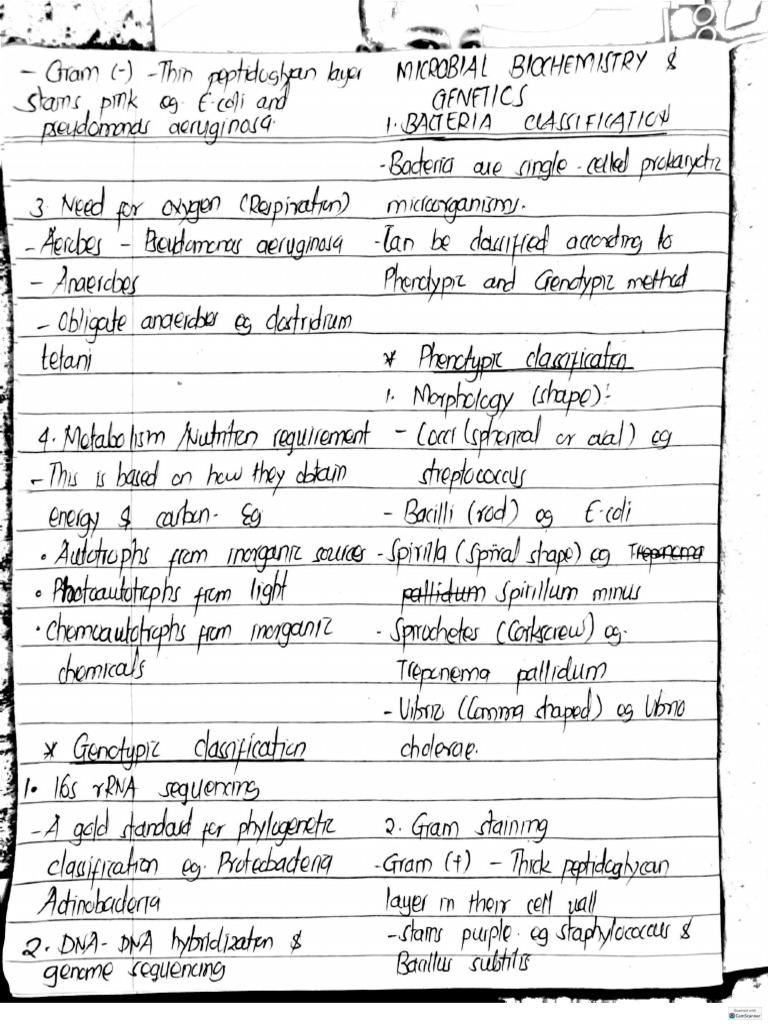 MICROBIAL BIOCHEMISTRY &
GENETICS
1. BACTERIA CLASSIFICATION
- Bacteria are single-celled prokaryotic
microorganisms.
- Can be classified according to
Phenotypic and Genotypic method
* Phenotypic classification
1. Morphology (shape):-
- Cocci (spherical or oval) eg
streptococcus
- Bacilli (rod) eg E.coli
- Spirilla (spiral shape) eg Treponema
pallidum Spirillum minus
- Spirochetes (Corkscrew) eg.
Treponema pallidum
- Vibrio (Comma shaped) eg Vibrio
cholerae.
2. Gram staining
- Gram (+) - Thick peptidoglycan
layer in their cell wall
- stains purple. eg staphylococcus &
Bacillus subtilis
- Gram (-) - Thin peptidoglycan layer
stains pink eg. E.coli and
pseudomonas aeruginosa.
3. Need for oxygen (Respiration)
- Aerobes - Pseudomonas aeruginosa
- Anaerobes
- Obligate anaerobes eg clostridium
tetani
4. Metabolism/Nutrition requirement
- This is based on how they obtain
energy & carbon. Eg
• Autotrophs from inorganic sources
• Photoautotrophs from light
• Chemoautotrophs from inorganic
chemicals
* Genotypic classification
1. 16s rRNA sequencing
- A gold standard for phylogenetic
classification eg. Proteobacteria
Actinobacteria
2. DNA-DNA hybridization &
genome sequencing
Scanned with
CamScanner